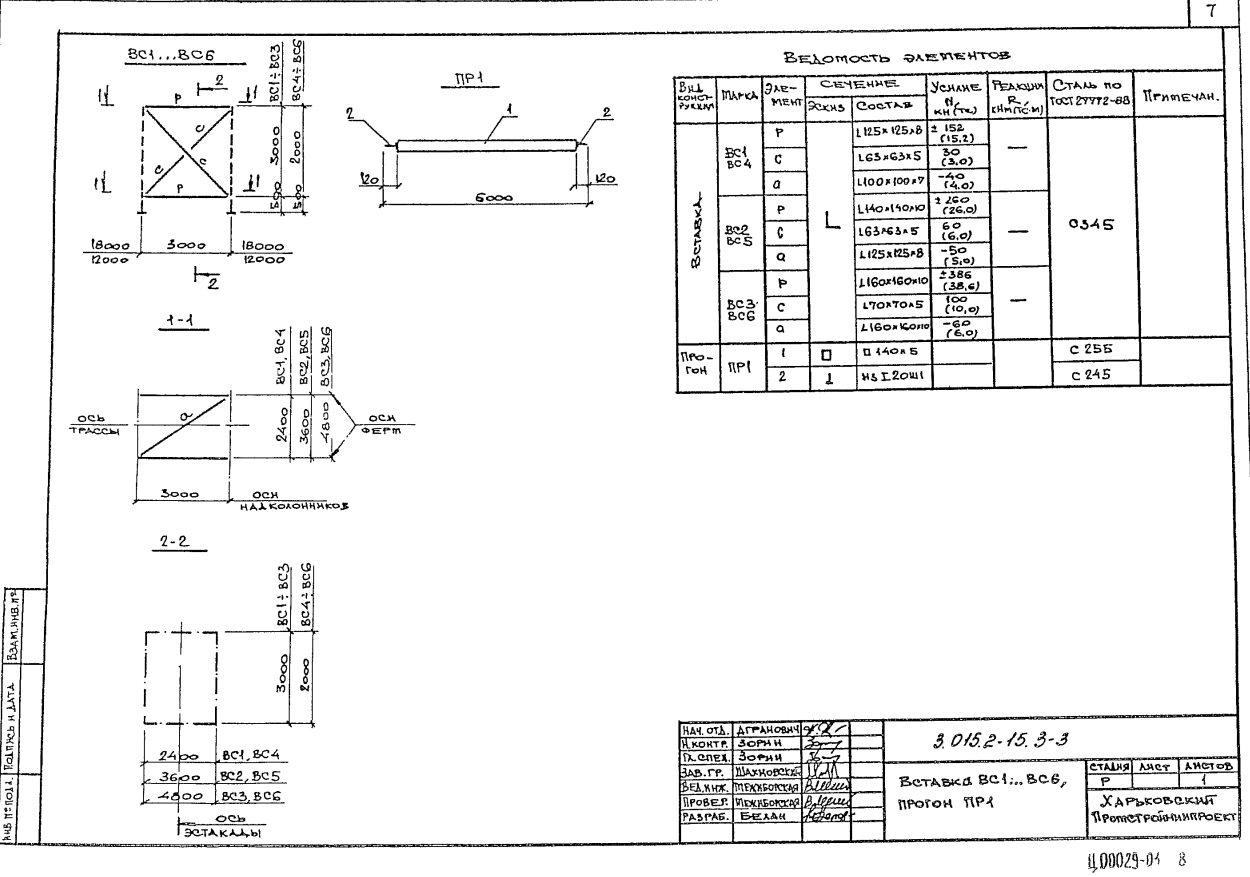 7
ВС1...ВС6
2
1
1
р
с
с
р
1
1
ВС1÷ВС3
ВС4÷ВС6
3000
2000
500
500
18000
12000
3000
18000
12000
2
ПР1
2
1
2
120
120
6000
1-1
ВС1, ВС4
ВС2, ВС5
ВС3, ВС6
а
ось
трассы
2400
3600
4800
оси
ферм
3000
оси
надколонников
2-2
ВС1÷ВС3
ВС4÷ВС6
3000
2000
2400 ВС1, ВС4
3600 ВС2, ВС5
4800 ВС3, ВС6
ось
эстакады
Ведомость элементов
Вид конструкции Марка Элемент Сечение Усилие N, кН (тс) Реакции R, кНм (тс·м) Сталь по ГОСТ 27772-88 Примечан.
Эскиз Состав
Вставка ВС1 ВС4 р L125×125×8 ±152 (15,2) — С345
с L63×63×5 30 (3,0)
а L100×100×7 -40 (4,0)
ВС2 ВС5 р L140×140×10 ±260 (26,0) —
с L63×63×5 60 (6,0)
а L125×125×8 -50 (5,0)
ВС3 ВС6 р L160×160×10 ±386 (38,6) —
с L70×70×5 100 (10,0)
а L160×160×10 -60 (6,0)
Прогон ПР1 1 □ □ 140×5 С 255
2 ⊥ из I 20Ш1 С 245
Взам.инв.№
Подпись и дата
Инв № подл.
Нач. отд. Агранович
Н.контр. Зорин
Гл.спец. Зорин
Зав.гр. Шахновский
Вед.инж. Межиборская
Провер. Межиборская
Разраб. Белан
3.015.2-15.3-3
Вставка ВС1...ВС6,
прогон ПР1
Стадия Лист Листов
Р 1
Харьковский
Промстройниипроект
Ц.00029-01 8